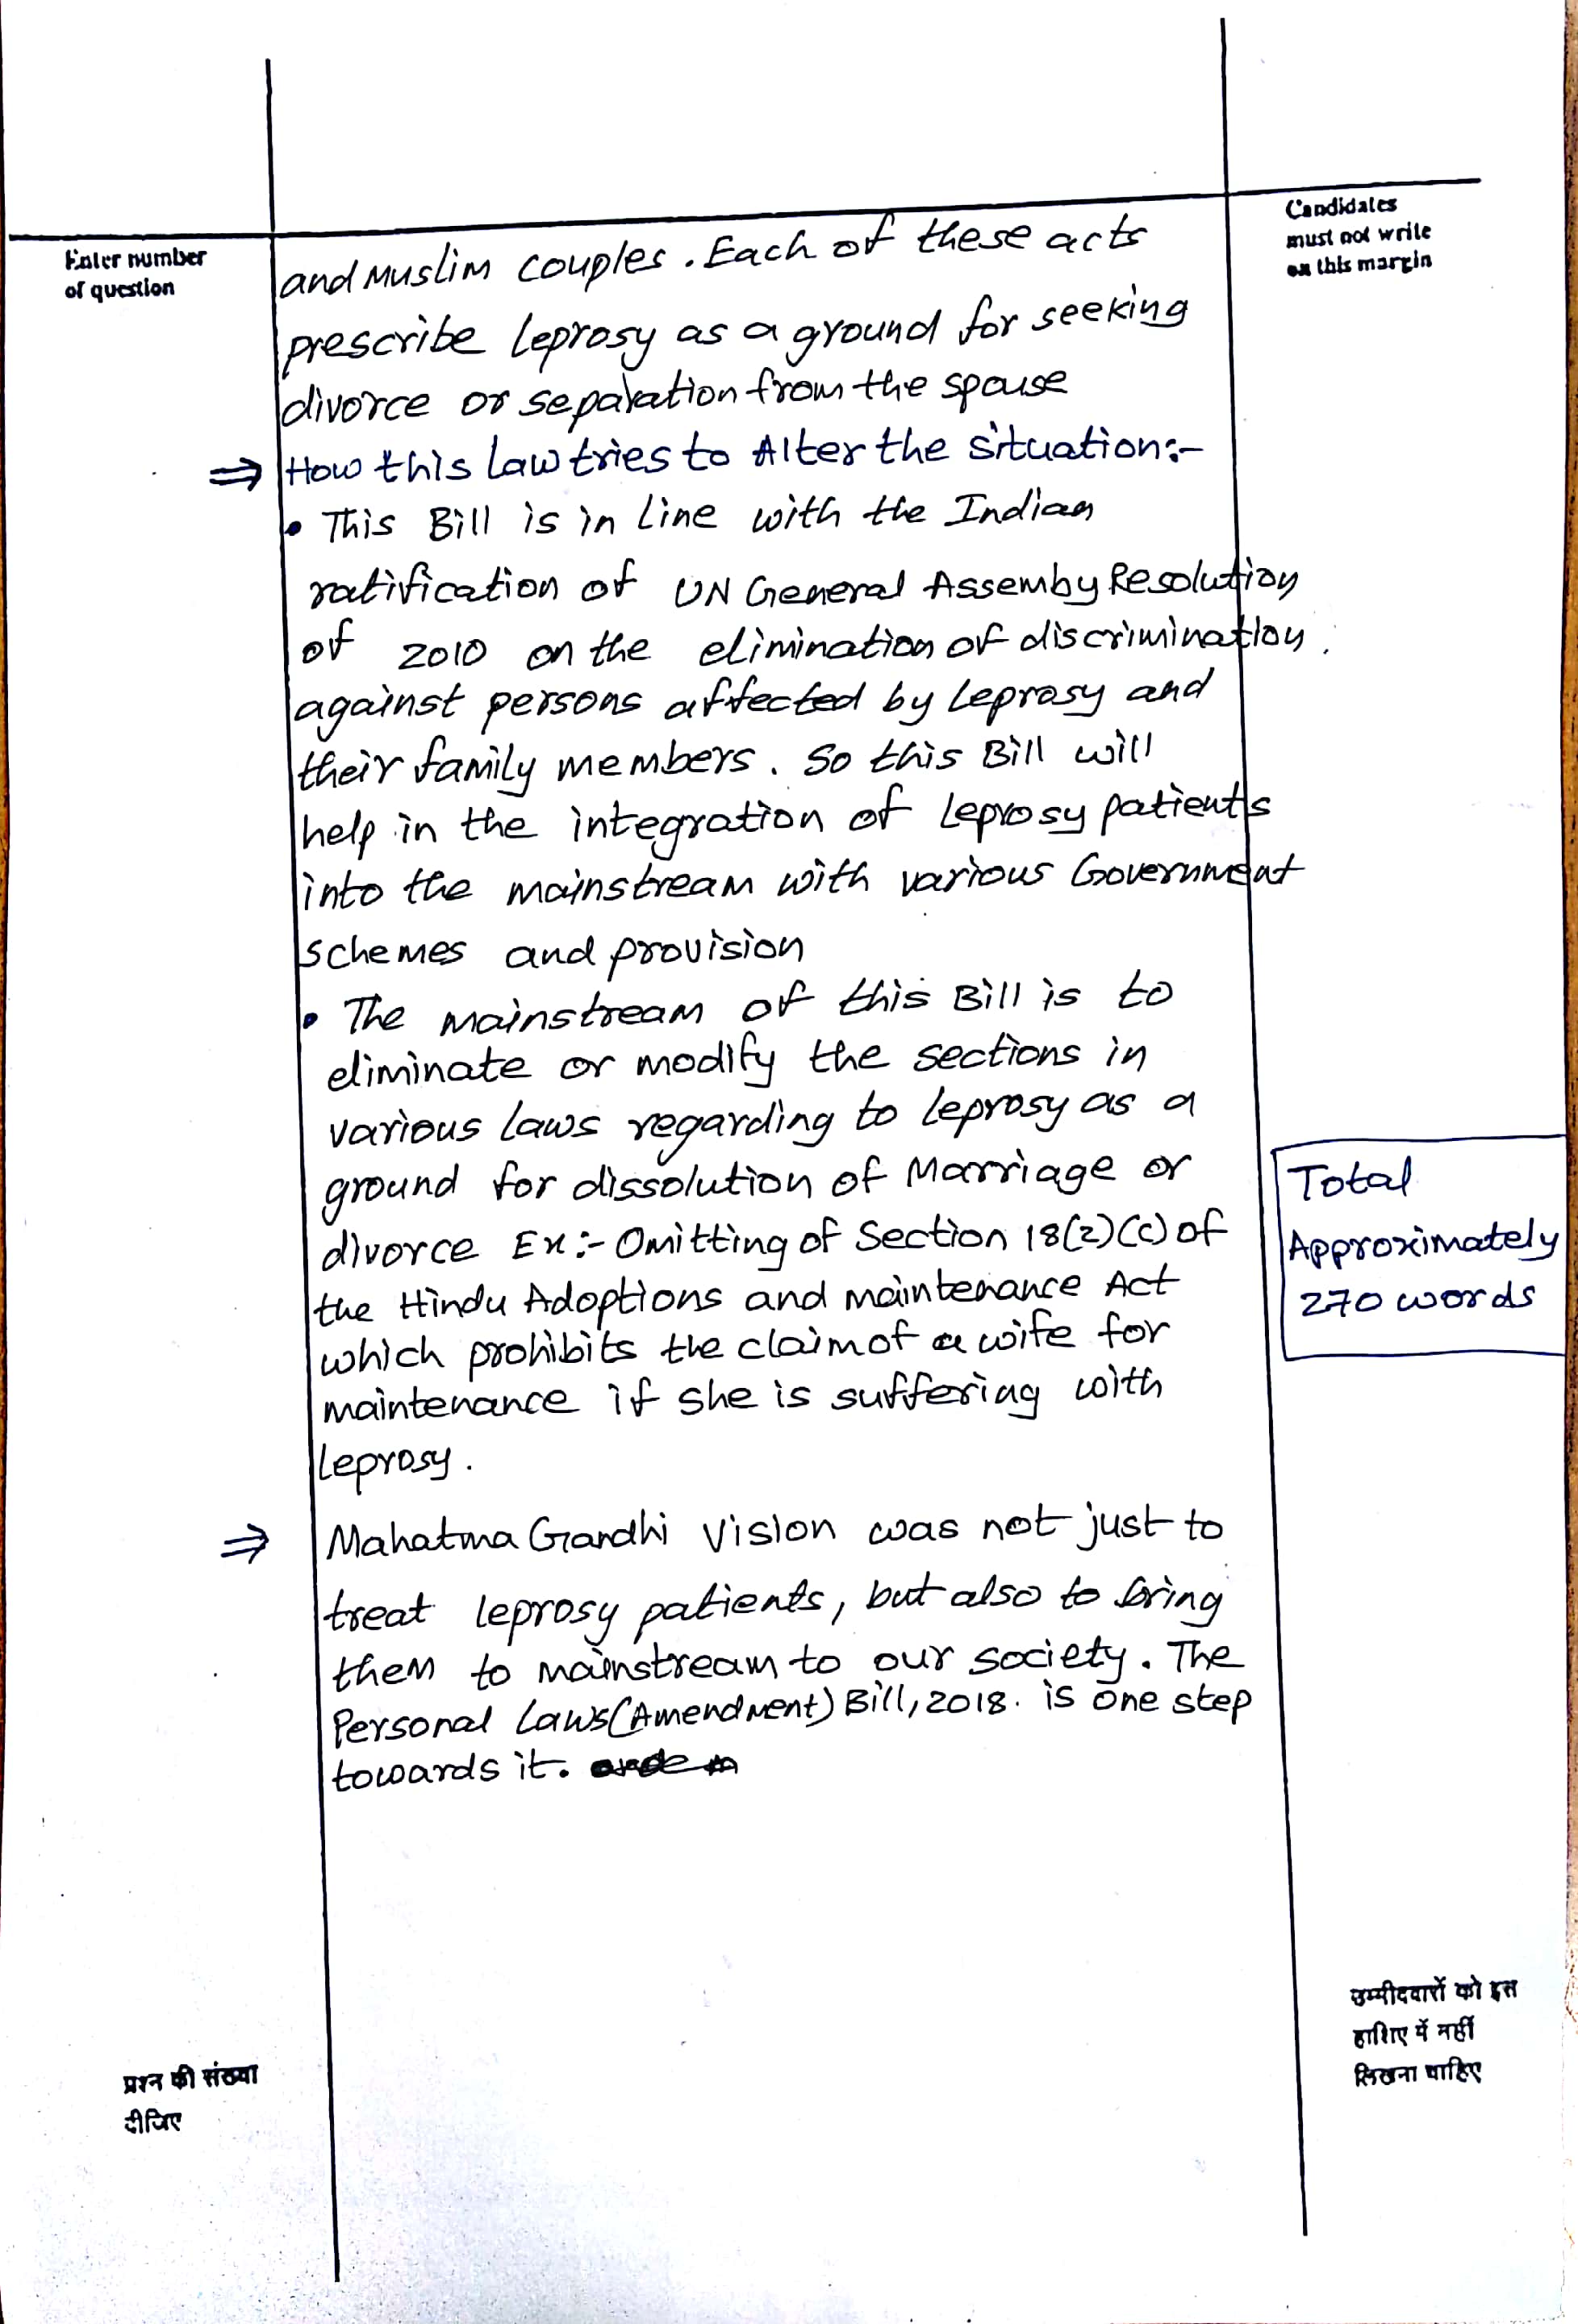 Enter number
of question
Candidates
must not write
on this margin
and Muslim couples. Each of these acts
prescribe leprosy as a ground for seeking
divorce or separation from the spouse
⇒ How this law tries to Alter the situation:-
• This Bill is in line with the Indian
ratification of UN General Assemby Resolution
of 2010 on the elimination of discrimination
against persons affected by leprosy and
their family members. So this Bill will
help in the integration of leprosy patients
into the mainstream with various Government
schemes and provision
• The mainstream of this Bill is to
eliminate or modify the sections in
various laws regarding to leprosy as a
ground for dissolution of Marriage or
divorce Ex:- Omitting of Section 18(2)(c) of
the Hindu Adoptions and maintenance Act
which prohibits the claim of a wife for
maintenance if she is suffering with
leprosy.
Total
Approximately
270 words
⇒ Mahatma Gandhi vision was not just to
treat leprosy patients, but also to bring
them to mainstream to our society. The
Personal Laws (Amendment) Bill, 2018. is one step
towards it.
उम्मीदवारों को इस
हाशिए में नहीं
लिखना चाहिए
प्रश्न की संख्या
दीजिए